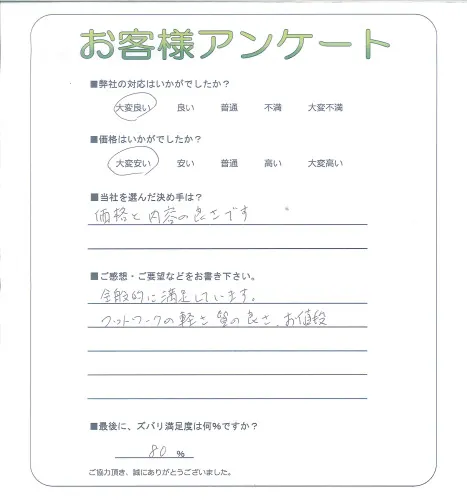 お客様アンケート
■弊社の対応はいかがでしたか？
大変良い 良い 普通 不満 大変不満
■価格はいかがでしたか？
大変安い 安い 普通 高い 大変高い
■当社を選んだ決め手は？
価格と内容の良さです
■ご感想・ご要望などをお書き下さい。
全般的に満足しています。
フットワークの軽さ 質の良さ、お値段
■最後に、ズバリ満足度は何％ですか？
80 %
ご協力頂き、誠にありがとうございました。